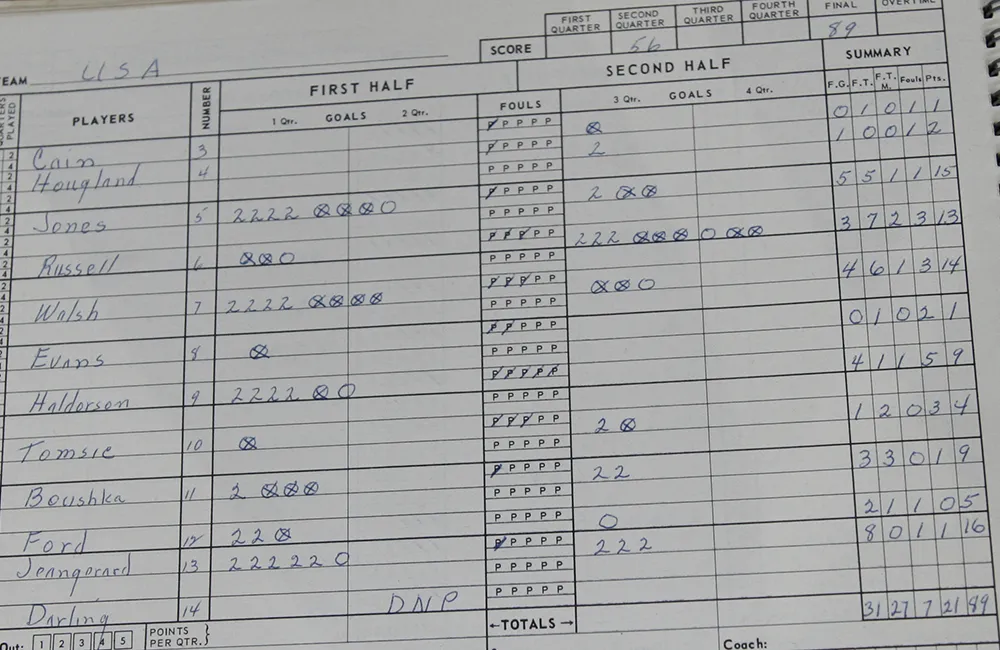 FIRST QUARTER SECOND QUARTER THIRD QUARTER FOURTH QUARTER FINAL OVERTIME
SCORE 56 89
TEAM USA
FIRST HALF SECOND HALF SUMMARY
QUARTERS PLAYED PLAYERS NUMBER 1 Qtr. GOALS 2 Qtr. FOULS 3 Qtr. GOALS 4 Qtr. F.G. F.T. F.T. M. Fouls Pts.
Cain 3 P P P P P ⊗ 0 1 0 1 1
Hougland 4 P P P P P 2 1 0 0 1 2
P P P P P
Jones 5 2222 ⊗⊗⊗O P P P P P 2 ⊗⊗ 5 5 1 1 15
P P P P P
Russell 6 ⊗⊗O P P P P P 222 ⊗⊗⊗ O ⊗⊗ 3 7 2 3 13
P P P P P
Walsh 7 2222 ⊗⊗⊗⊗ P P P P P ⊗⊗O 4 6 1 3 14
P P P P P
Evans 8 ⊗ P P P P P 0 1 0 2 1
P P P P P
Haldorson 9 2222 ⊗O P P P P P 4 1 1 5 9
P P P P P
Tomsic 10 ⊗ P P P P P 2 ⊗ 1 2 0 3 4
P P P P P
Boushka 11 2 ⊗⊗⊗ P P P P P 22 3 3 0 1 9
P P P P P
Ford 12 22⊗ P P P P P O 2 1 1 0 5
Jeangerard 13 22222 O P P P P P 222 8 0 1 1 16
P P P P P
Darling 14 DNP P P P P P
←TOTALS→ 31 27 7 21 89
Out: 1 2 3 4 5 POINTS PER QTR. Coach: